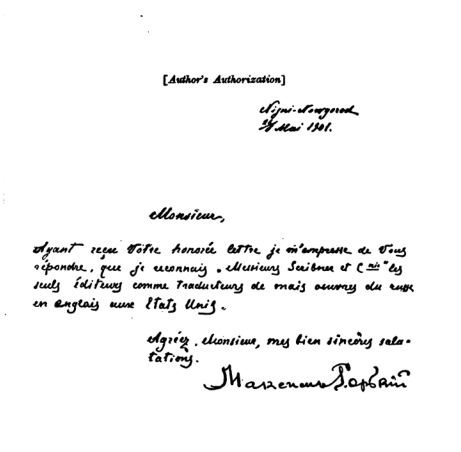 [Author's Authorization]
Nijni-Nowgorod
Mai 1901.
Monsieur,
Ayant reçu Votre honorée lettre je m'empresse de Vous
répondre, que je reconnais Messieurs Scribner et C nie les
seuls éditeurs comme traducteurs de mais oeuvres du russe
en anglais aux Etats Unis.
Agréez, Monsieur, mes bien sincères salu-
tations.